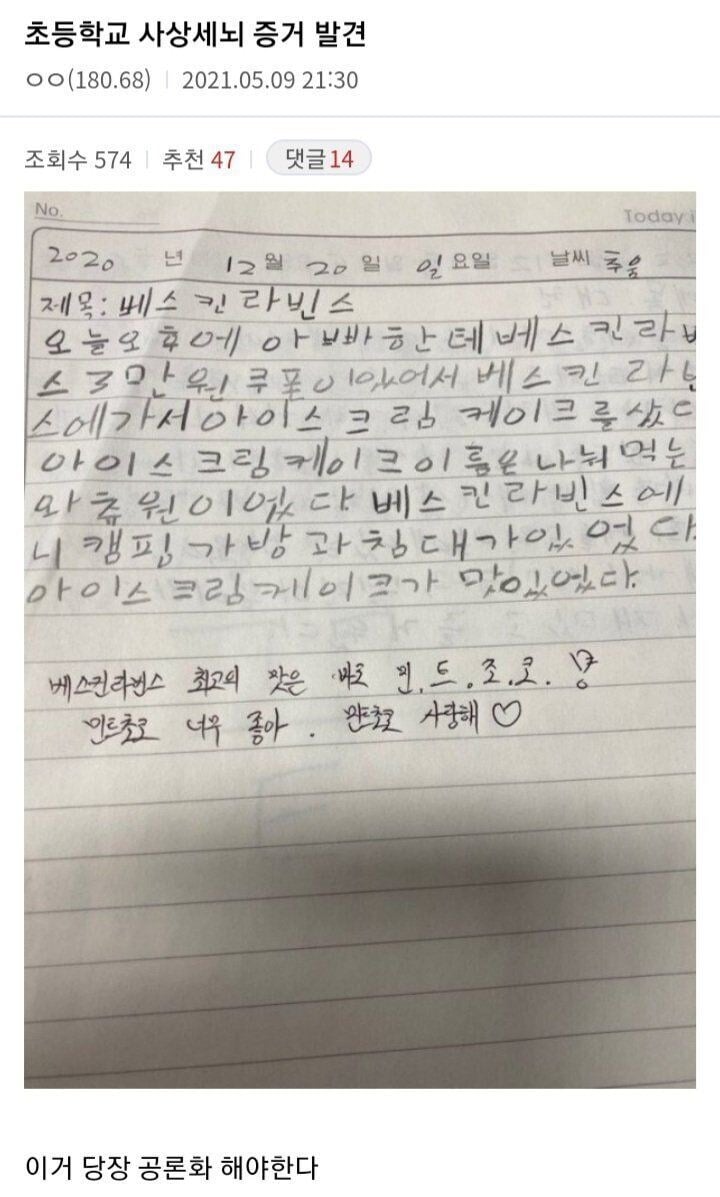 초등학교 사상세뇌 증거 발견
ㅇㅇ(180.68) | 2021.05.09 21:30
조회수 574 | 추천 47 | 댓글 14
No. Today i
2020 년 12월 20일 일요일 날씨 추움
제목: 베스킨라빈스
오늘오후에 아빠한테베스킨라
스3만원쿠폰이있어서 베스킨라
스에가서아이스크림 케이크를샀
아이스크림케이크이름은나눠먹는
와츄원이었다 베스킨라빈스에
니캠핑가방과침대가있었다
아이스크림케이크가 맛있었다.
베스킨라빈스 최고의 맛은 바로 민.트.초.코.
민트초코 너무 좋아. 민트초코 사랑해♡
이거 당장 공론화 해야한다